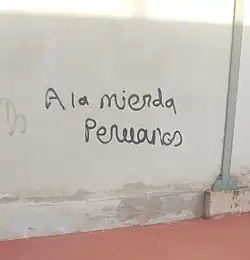 A la mierda
Peruanos